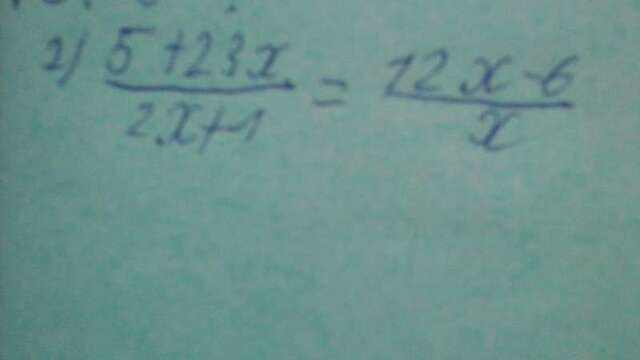 2) 5+23x / 2x+1 = 12x-6 / x